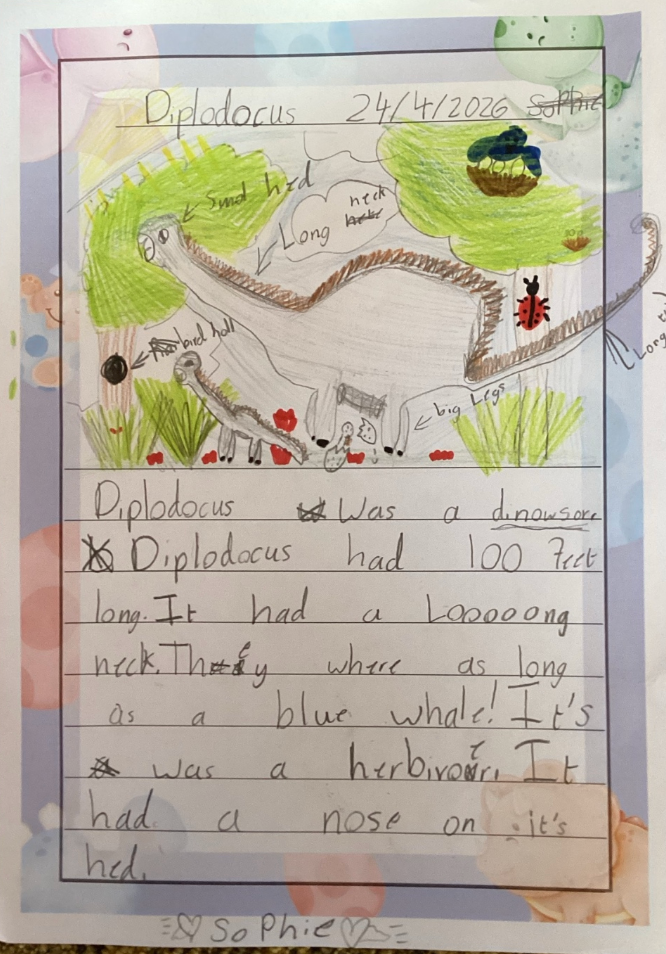 Diplodocus 24/4/2026 Sophie
Smol hed
Long neck
bird holl
Long
big Legs
Diplodocus Was a dinowsore
Diplodocus had 100 feet
long. It had a Looooong
neck. They where as long
as a blue whale! It's
was a herbivori. It
had a nose on it's
hed.
SoPhie